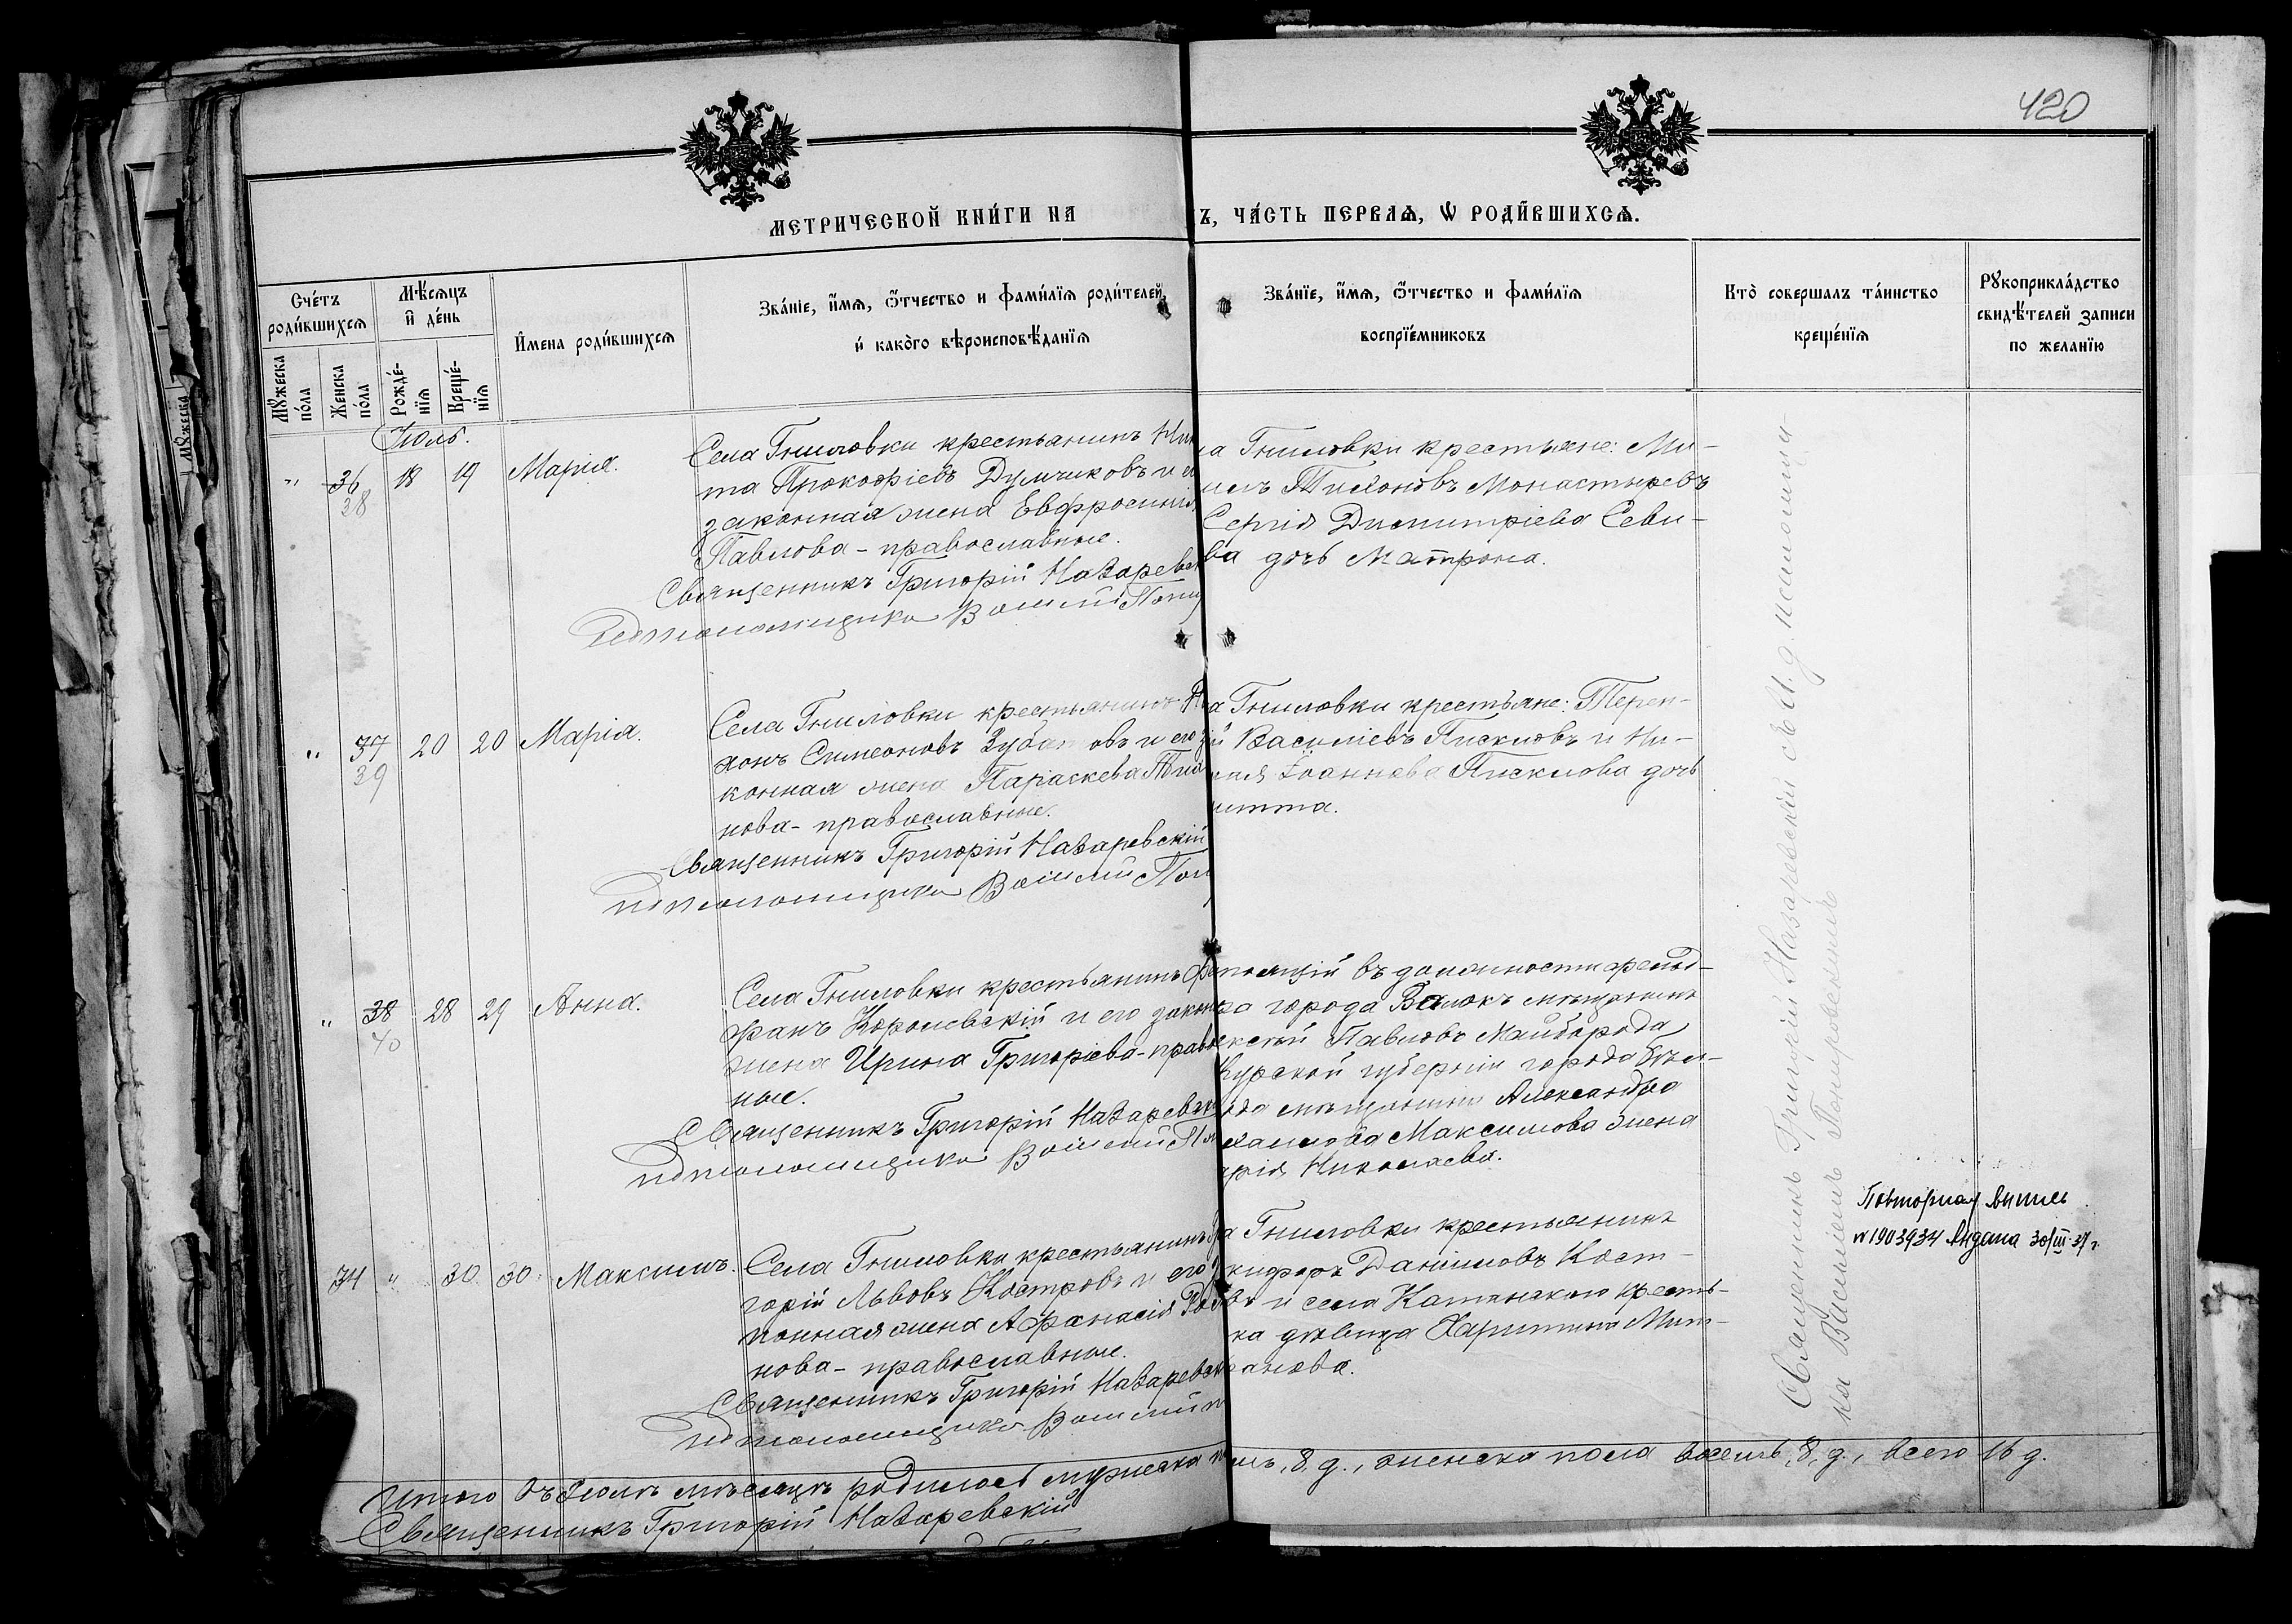 420
МЕТРИЧЕСКОЙ КНИ́ГИ НА
Ъ, ЧА́СТЬ ПЕРВАѦ, Ѡ РОДИ́ВШИХСѦ.
Сче́тъ родившихсѧ
Мꙋ́жеска по́ла
Же́нска по́ла
Мѣ́сяцъ и҆ де́нь
Рожде́нїѧ
Креще́нїѧ
И҆мена роди́вшихсѧ
Зва́нїе, и҆́мѧ, ѻ҆́тчество и фами́лїѧ роди́телей,
и҆ како́го вѣроисповѣ́данїѧ
Зва́нїе, и҆́мѧ, ѻ҆́тчество и фами́лїѧ
воспрїе́мниковъ
Кто̀ соверша́лъ та́инство
креще́нїѧ
Рꙋкоприкла́дство
свидѣ́телей записи
по желанїю
Мꙋжеска
Июль.
" 36 18 19 Марія.
38
Села Гниловки крестьянинъ Ники
та Прокофіевъ Думчиковъ и е
законная жена Евфросинія
Павлова - православные.
Священникъ Григорій Назаревс
псаломщика Василій
а Гниловки крестьяне: Ми-
илъ Тихоновъ Монастыревъ
Сергія Димитріева Севи-
ва дочь Матрона.
" 37 20 20 Марія.
39
Села Гниловки крестьянинъ
хонъ Симеоновъ и его
конная жена Параскева
нова - православные.
Священникъ Григорій Назаревскій
псаломщика Василій
а Гниловки крестьяне: Терен-
й Василіевъ Пискловъ и Ни-
Іоаннова Писклова дочь
" 38 28 29 Анна.
40
Села Гниловки крестьянинъ
фанъ Королевскій и его закон
жена Ирина Григоріева - право
ные.
Священникъ Григорій Назаревск
псаломщика Василій
тоящій въ должности фельд-
ра города Валокъ мѣщанинъ
Павловъ Майборода
Курской губерніи города Бѣл-
ода мѣщанина Александра
Максимова жена
арія Николаева.
34 " 30 30 Максимъ.
Села Гниловки крестьянинъ
горій Львовъ Костровъ и его
конная жена Афанасія
нова - православные.
Священникъ Григорій Назаревск
псаломщика Василій
а Гниловки крестьянинъ
кифоръ Даниловъ Кост-
въ и села Катанскаго кресть-
ка дѣвица Харитина Мит-
анова.
Священникъ Григорій Назаревскій съ и. д. псаломщи-
ка Василіемъ
Повторная выпись
№ 1903934 выдана 30/III 37 г.
Итого въ Іюлѣ мѣсяцѣ родилось мужеска п
мъ, 8, д., женска пола восемь, 8, д., всего 16 д.
Священникъ Григорій Назаревскій